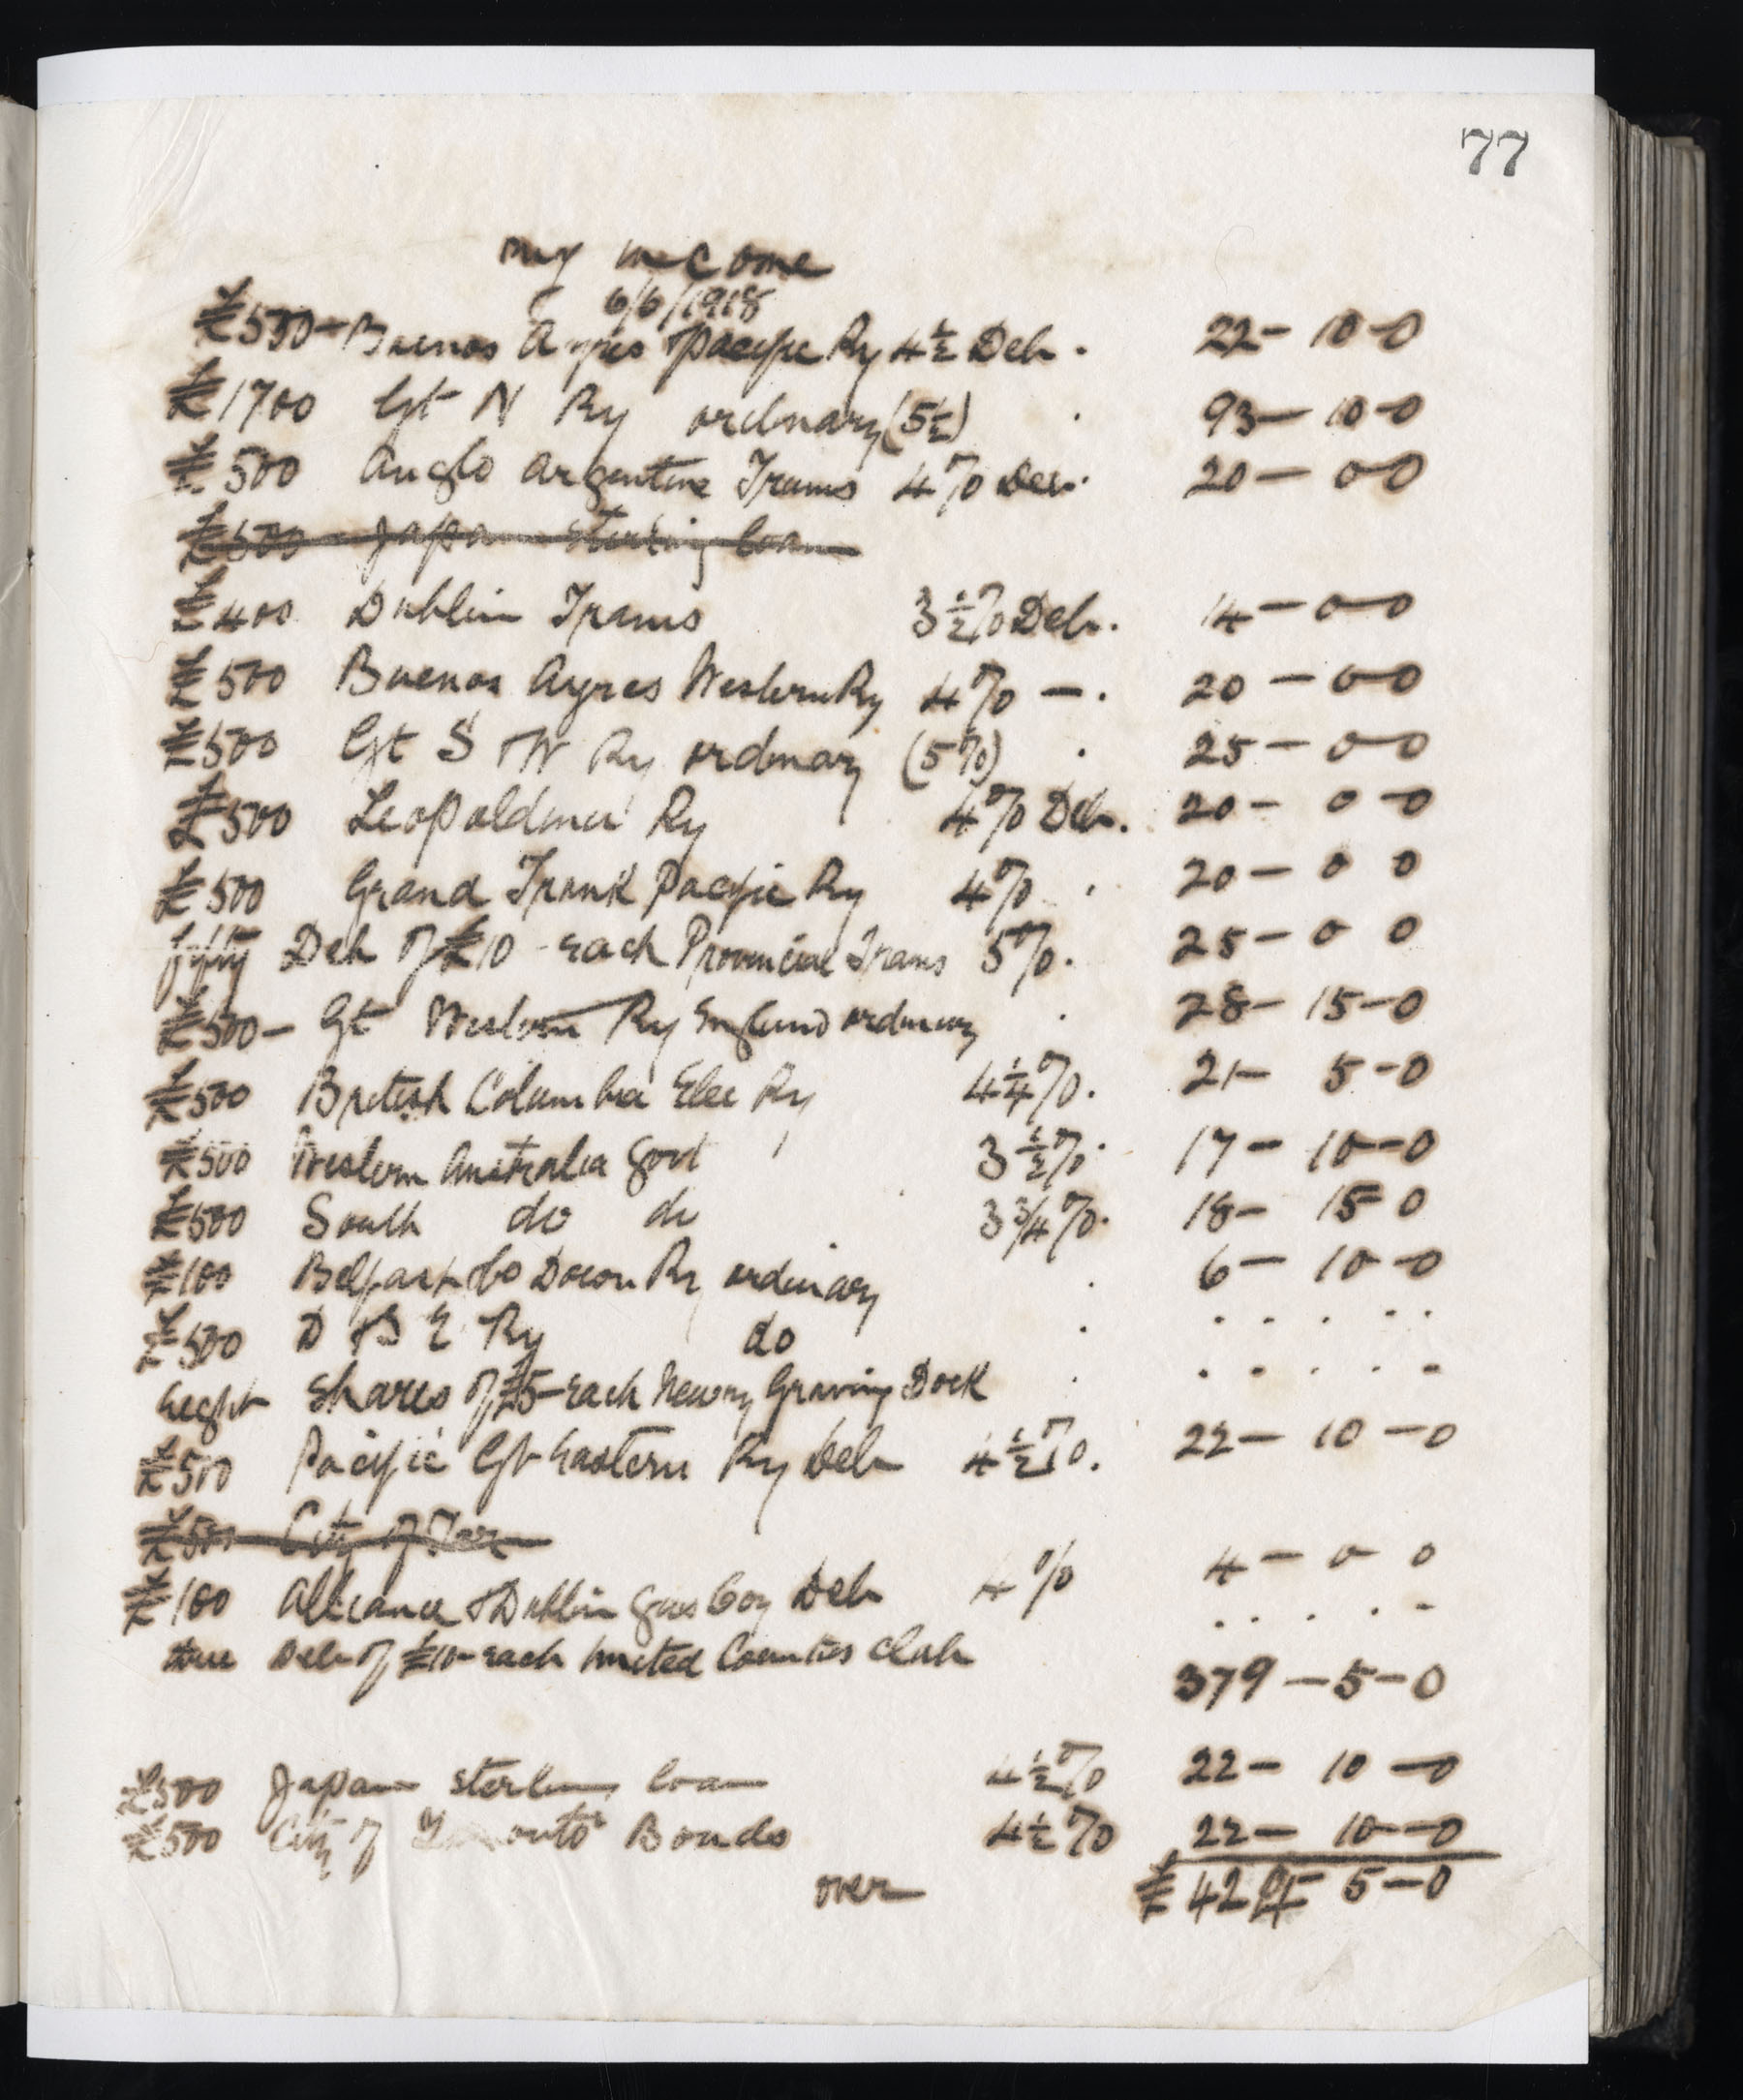 77
my income
6/6/1918
£500 - Buenos Ayres Pacific Ry 4½ Deb. 22 - 10 - 0
£1700 Gt N Ry ordinary (5½) . 93 - 10 - 0
£500 Anglo Argentine Trams 4% Deb. 20 - 0 - 0
£500 - Japan sterling loan
£400 Dublin Trams 3½% Deb. 14 - 0 - 0
£500 Buenos Ayres Western Ry 4% - . 20 - 0 - 0
£500 Gt S & W Ry ordinary (5%) . 25 - 0 - 0
£500 Leopoldina Ry 4% Deb. 20 - 0 - 0
£500 Grand Trunk Pacific Ry 4% . 20 - 0 0
fifty Deb of £10 - each Provincial Trams 5%. 25 - 0 0
£500 - Gt Western Ry England ordinary . 28 - 15 - 0
£500 British Columbia Elec Ry 4¼%. 21 - 5 - 0
£500 Western Australia Govt 3½%. 17 - 10 - 0
£500 South do do 3¾%. 18 - 15 - 0
£100 Belfast & Co Down Ry ordinary . 6 - 10 - 0
£500 D & S E Ry do . . . . . .
eight shares of £5 - each Newry Graving Dock . . . . . -
£500 Pacific Gt Eastern Ry Deb 4½%. 22 - 10 - 0
£500 City of Tor
£100 Alliance & Dublin Gas Coy Deb 4% 4 - 0 0
three Deb of £10 - each United Counties Club . . . . -
379 - 5 - 0
£500 Japan sterling loan 4½% 22 - 10 - 0
£500 City of Toronto Bonds 4½% 22 - 10 - 0
over £424 - 5 - 0